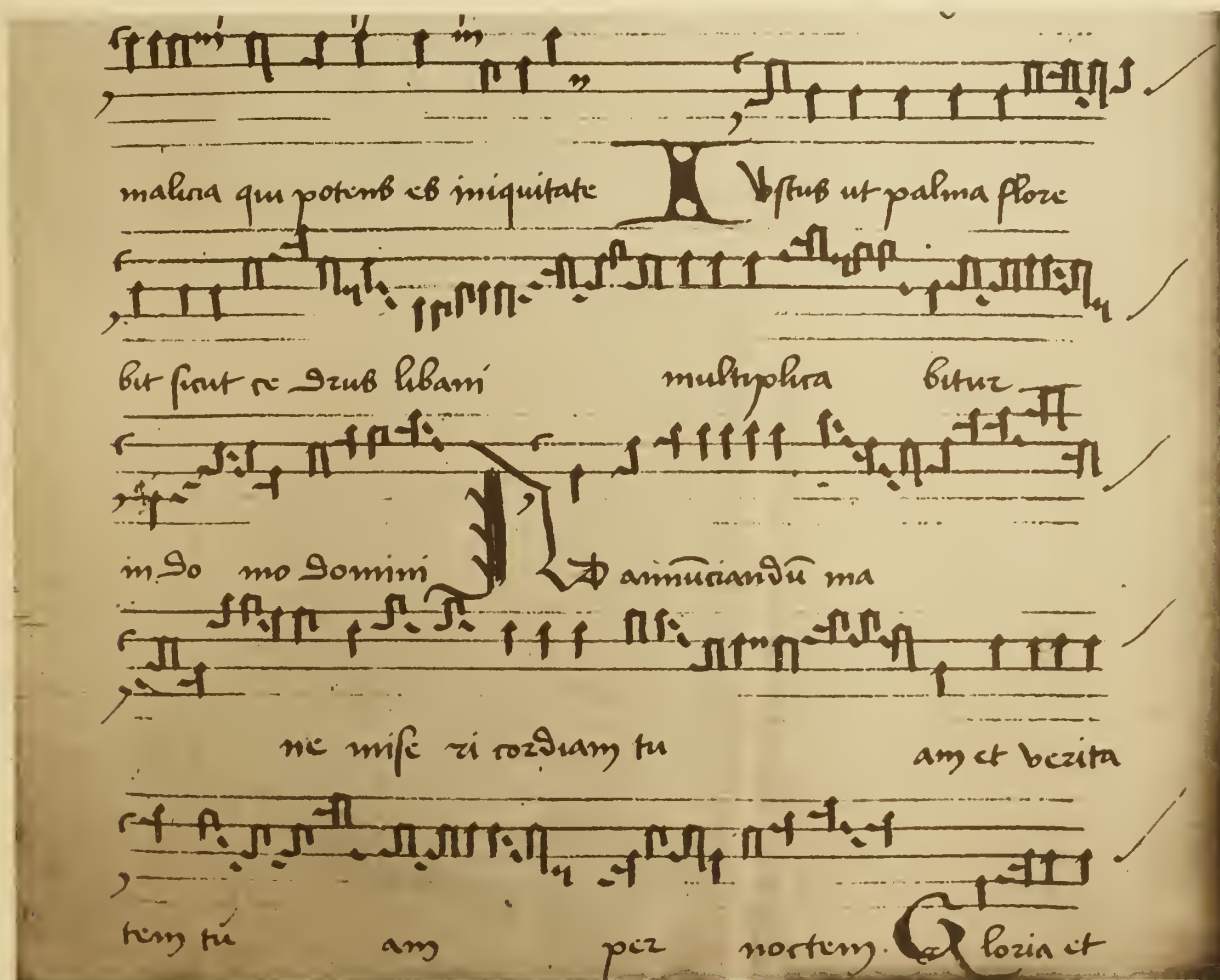 malicia qui potens es iniquitate IVstus ut palma flore
bit sicut ce drus libani multiplica bitur
in do mo domini AD annūciandū ma
ne mise ri cordiam tu am et verita
tem tu am per noctem. Gloria et